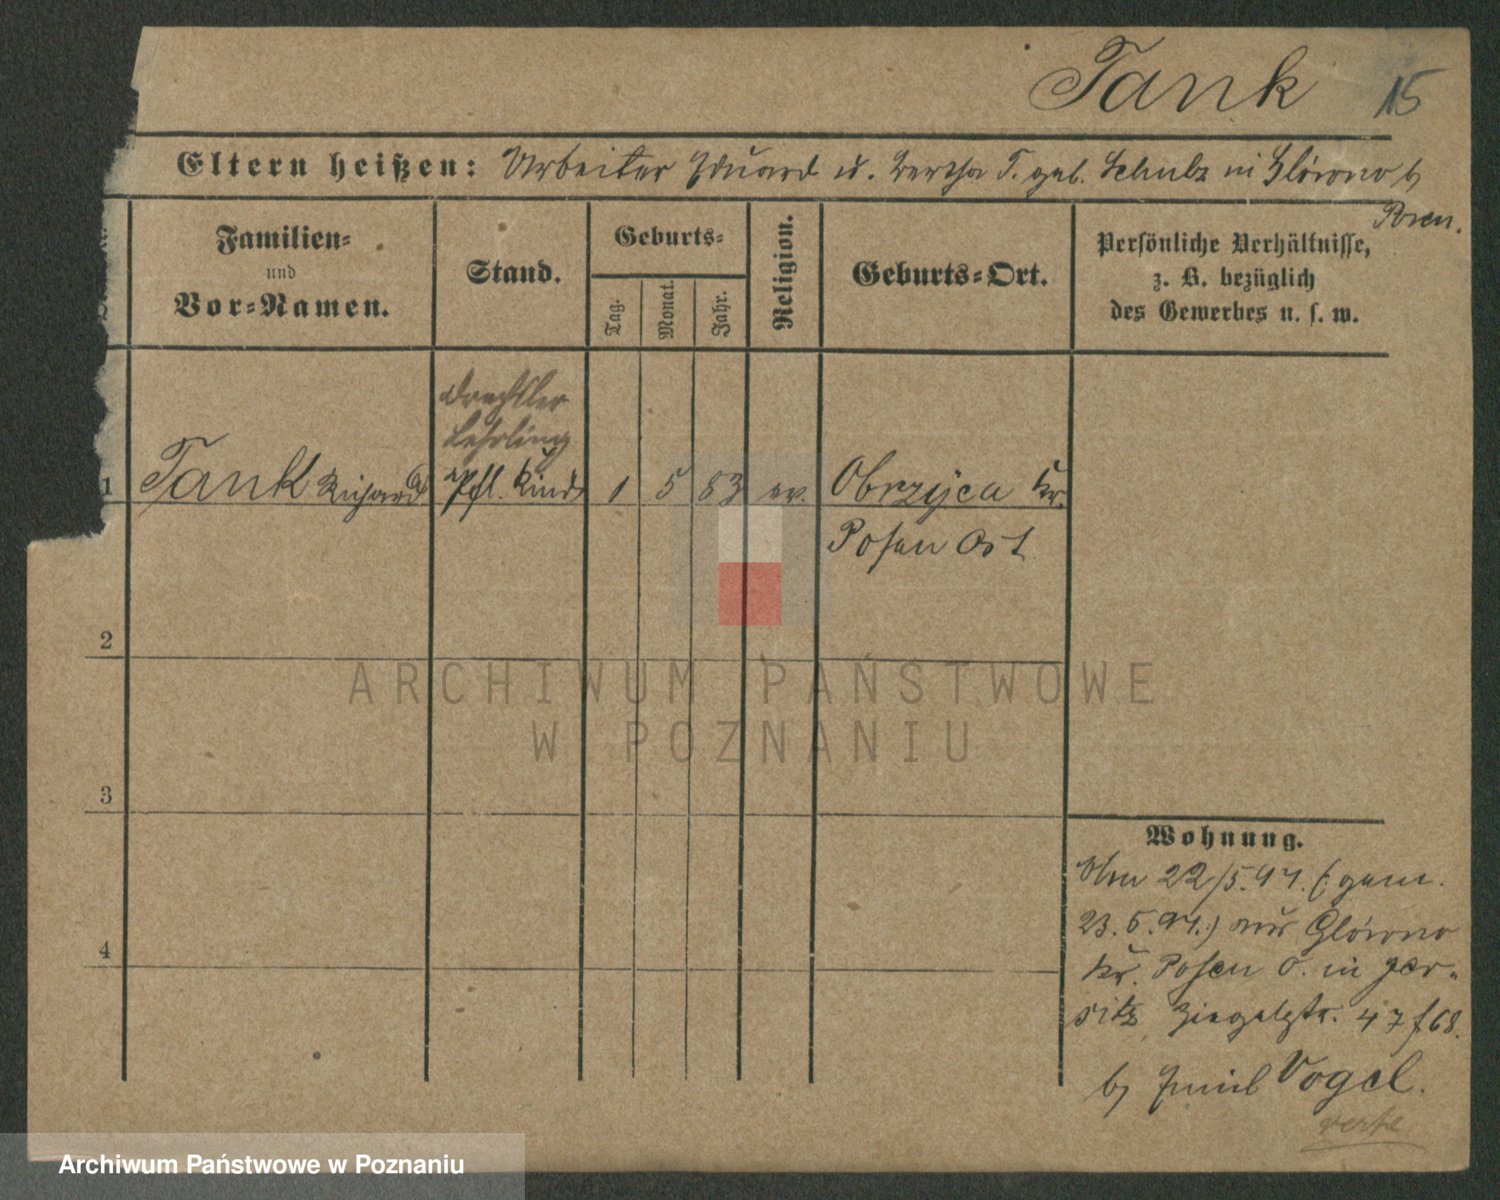 Tank 15
Eltern heißen: Arbeiter Eduard u. Bertha T. geb. Schulz in Glówno b/
Posen.
Familien=
und
Vor=Namen.
Stand.
Geburts=
Tag.
Monat.
Jahr.
Religion.
Geburts=Ort.
Persönliche Verhältnisse,
z. B. bezüglich
des Gewerbes u. s. w.
Drechsler
Lehrling
1 Tank Richard Pfl. Kind 1 5 83 ev. Obrzyca Kr.
Posen Ost
2
3
4
ARCHIWUM PAŃSTWOWE
W POZNANIU
Wohnung.
22/5.97. (: gem.
23.5.97.:) aus Glówno
Kr. Posen O. in Jer-
sitz, Ziegelstr. 47 f 68.
b/ Emil Vogel.
verte
Archiwum Państwowe w Poznaniu